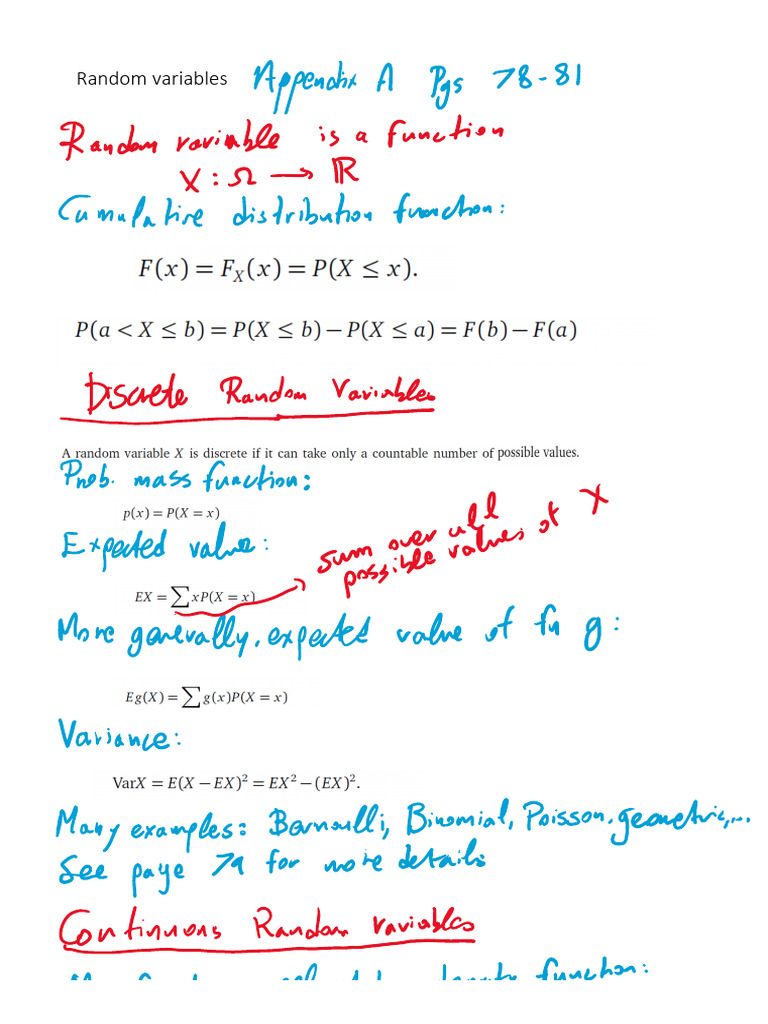 Random variables Appendix A Pgs 78-81
Random variable is a function
X : Ω → ℝ
Cumulative distribution function:
F(x) = F_X(x) = P(X ≤ x).
P(a < X ≤ b) = P(X ≤ b) − P(X ≤ a) = F(b) − F(a)
Discrete Random Variables
A random variable X is discrete if it can take only a countable number of possible values.
Prob. mass function:
p(x) = P(X = x)
Expected value:
sum over all
possible values of X
EX = ∑ xP(X = x)
More generally, expected value of fn g:
Eg(X) = ∑ g(x)P(X = x)
Variance:
VarX = E(X − EX)² = EX² − (EX)².
Many examples: Bernoulli, Binomial, Poisson, geometric,...
See page 79 for more details
Continuous Random variables
function: